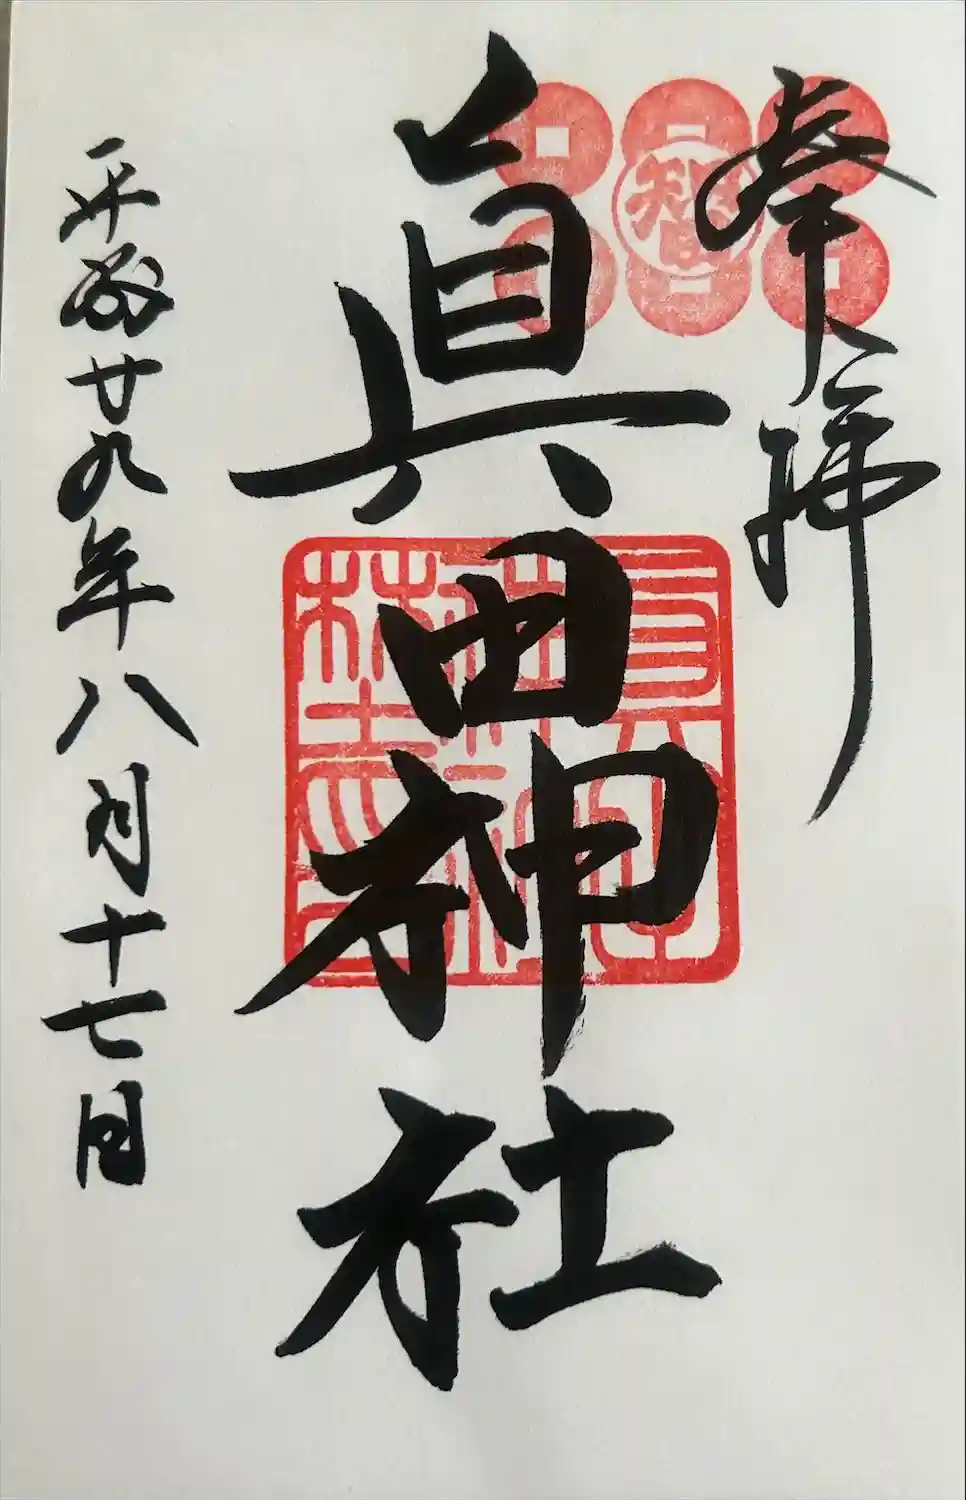 奉拝
眞田神社
平成廿九年八月十七日